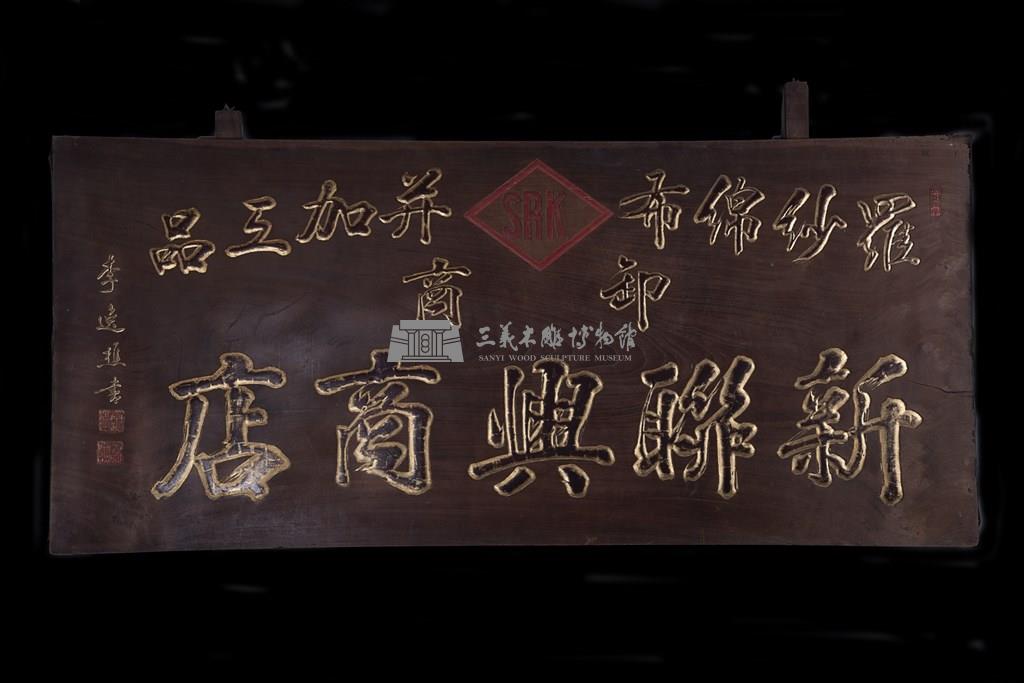 羅紗綿布 SRK 并加工品
卸商
新聯興商店
李逸樵書
三義木雕博物館
SANYI WOOD SCULPTURE MUSEUM